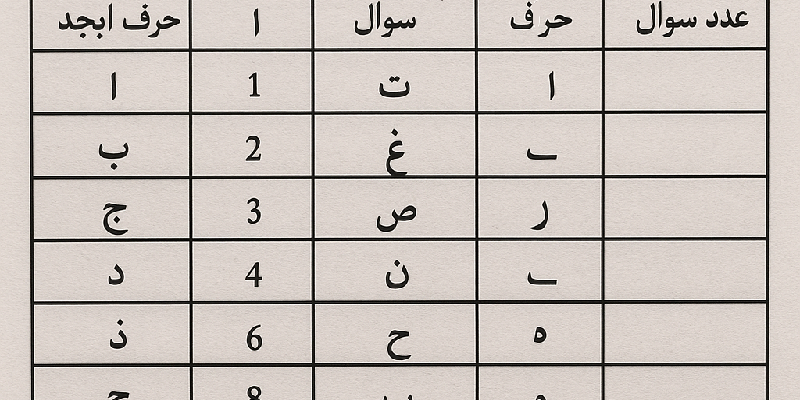 عدد سوال حرف سوال ا حرف ابجد
ا ت 1 ا
غ 2 ب
ر ص 3 ج
ن 4 د
ه ح 6 ذ
8